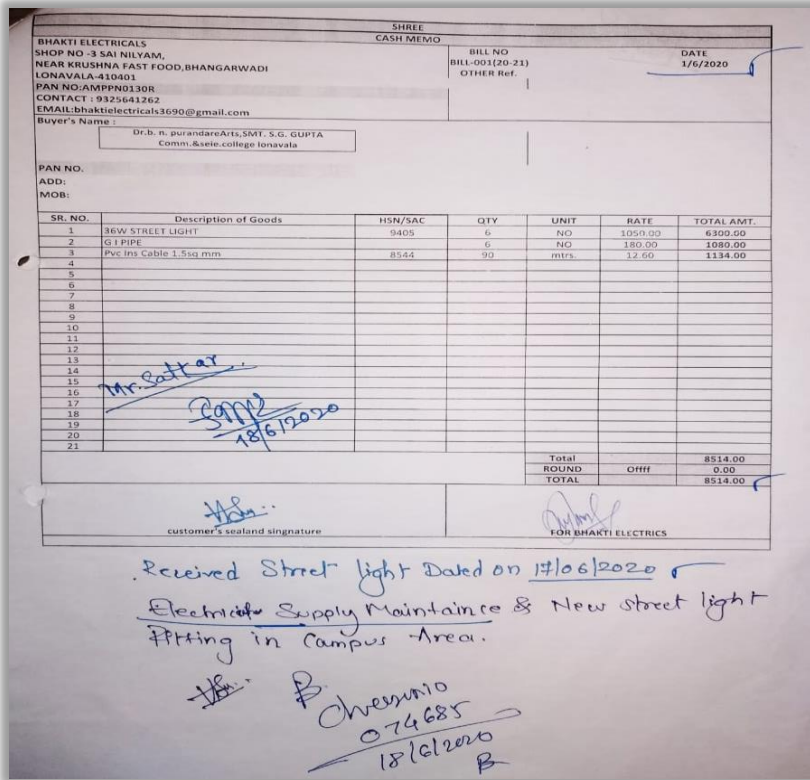 SHREE
CASH MEMO
BHAKTI ELECTRICALS
SHOP NO -3 SAI NILYAM,
NEAR KRUSHNA FAST FOOD,BHANGARWADI
LONAVALA-410401
PAN NO:AMPPN0130R
CONTACT : 9325641262
EMAIL:bhaktielectricals3690@gmail.com
BILL NO
BILL-001(20-21)
OTHER Ref.
DATE
1/6/2020
Buyer's Name :
Dr.b. n. purandareArts,SMT. S.G. GUPTA
Comm.&seie.college lonavala
PAN NO.
ADD:
MOB:
SR. NO. Description of Goods HSN/SAC QTY UNIT RATE TOTAL AMT.
1 36W STREET LIGHT 9405 6 NO 1050.00 6300.00
2 G I PIPE 6 NO 180.00 1080.00
3 Pvc Ins Cable 1.5sq mm 8544 90 mtrs. 12.60 1134.00
4
5
6
7
8
9
10
11
12
13
14
15
16
17
18
19
20
21
Mr. Sattar
18/6/2020
Total 8514.00
ROUND Offff 0.00
TOTAL 8514.00
customer's sealand singnature
FOR BHAKTI ELECTRICS
Received Street light Dated on 17/06/2020
Supply Maintaince & New street light
Fitting in Campus Area.
074685
18/6/2020